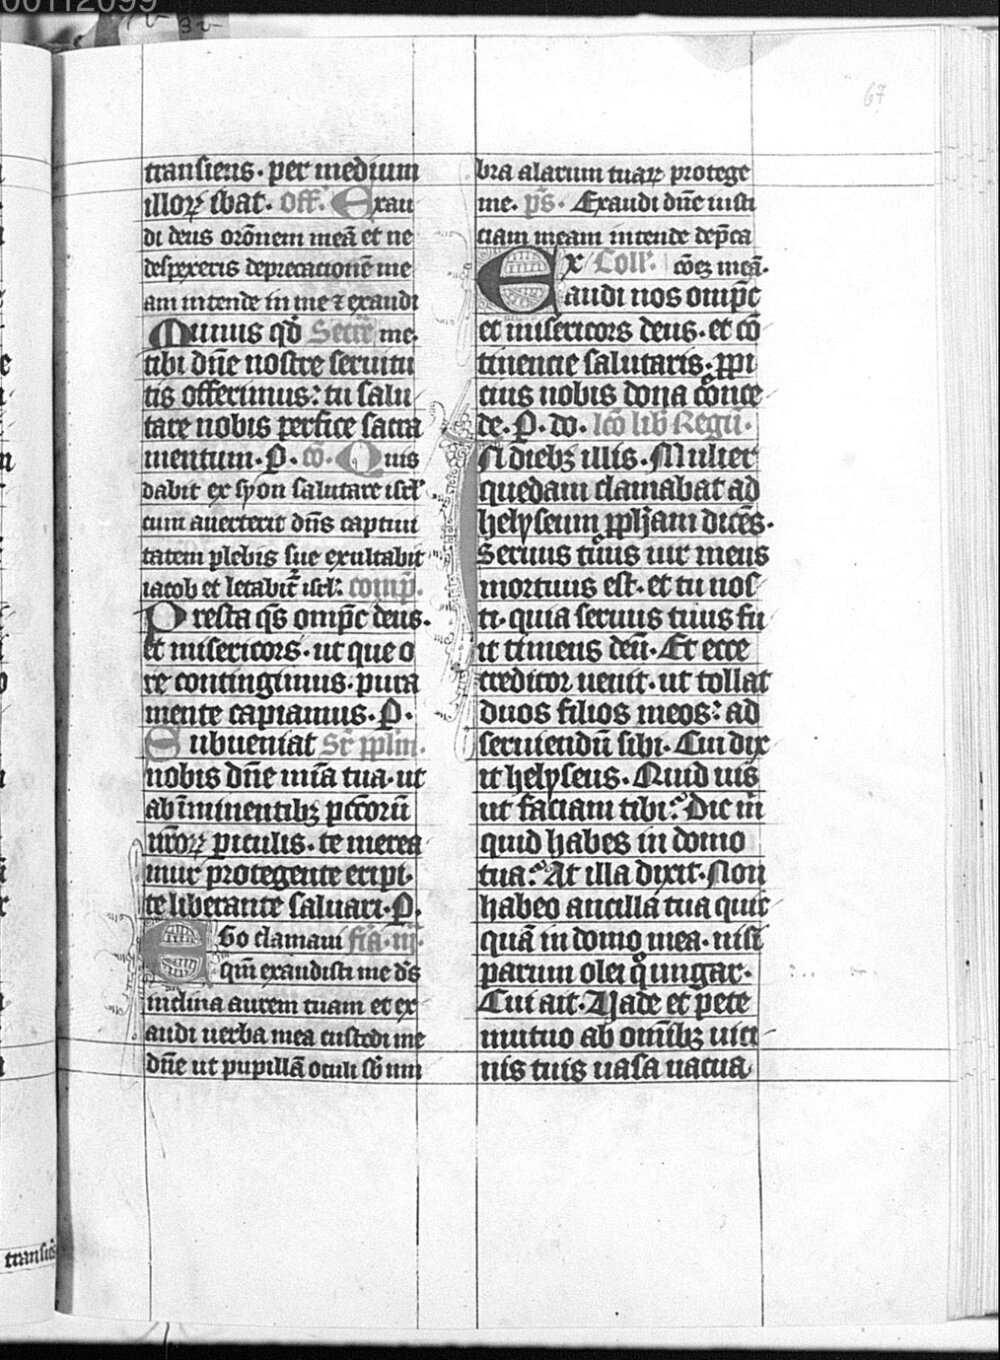 00112099
67
transiens. per medium
illoꝝ ibat. off. Exau
di deus orōnem meā et ne
despexeris deprecationē me
am intende in me ⁊ exaudi
Munus qd̄ Secr̄ me.
tibi dn̄e nostre seruitu
tis offerimus: tu salu
tare nobis perfice sacra
mentum. P. cō. Quis
dabit ex syon salutare isrl̄
cum auerterit dn̄s captiui
tatem plebis sue exultabit
iacob et letabit᷑ isrl̄. comp̄.
Presta qs̄ omp̄c deus.
et misericors. ut que o
re contingimus. pura
mente capiamus. P.
Subueniat Sr̄ pplm̄.
nobis dn̄e mīa tua. ut
ab īminentibꝫ pccōrū
nr̄oꝝ piculis. te merea
mur protegente eripi.
te liberante saluari. P.
Ego clamaui fr̄ia. iij.
qm̄ exaudisti me ds̄
inclina aurem tuam et ex
audi uerba mea custodi me
dn̄e ut pupillā oculi sb̄ um
bra alarum tuaꝝ protege
me. ps̄. Exaudi dn̄e iusti
ciam meam intende dep̄ca
Ex Coll. cōeꝫ meā.
audi nos omp̄c
et misericors deus. et cō
tinencie salutaris. ꝓpi
cius nobis dona conce
de. P. do. lc̄o lib̄ Regū.
In diebꝫ illis. Mulier
quedam clamabat ad
helyseum ꝓph̄am dicēs.
Seruus tuus uir meus
mortuus est. et tu nos
ti. quia seruus tuus fu
it timens deū. Et ecce
creditor uenit. ut tollat
duos filios meos: ad
seruiendū sibi. Cui dix
it helyseus. Quid uis
ut faciam tibi? Dic m̄
quid habes in domo
tua? At illa dixit. Non
habeo ancilla tua quic
quā in domo mea. nisi
parum olei q̊ ungar.
Cui ait. Vade et pete
mutuo ab omībꝫ uici
nis tuis uasa uacua